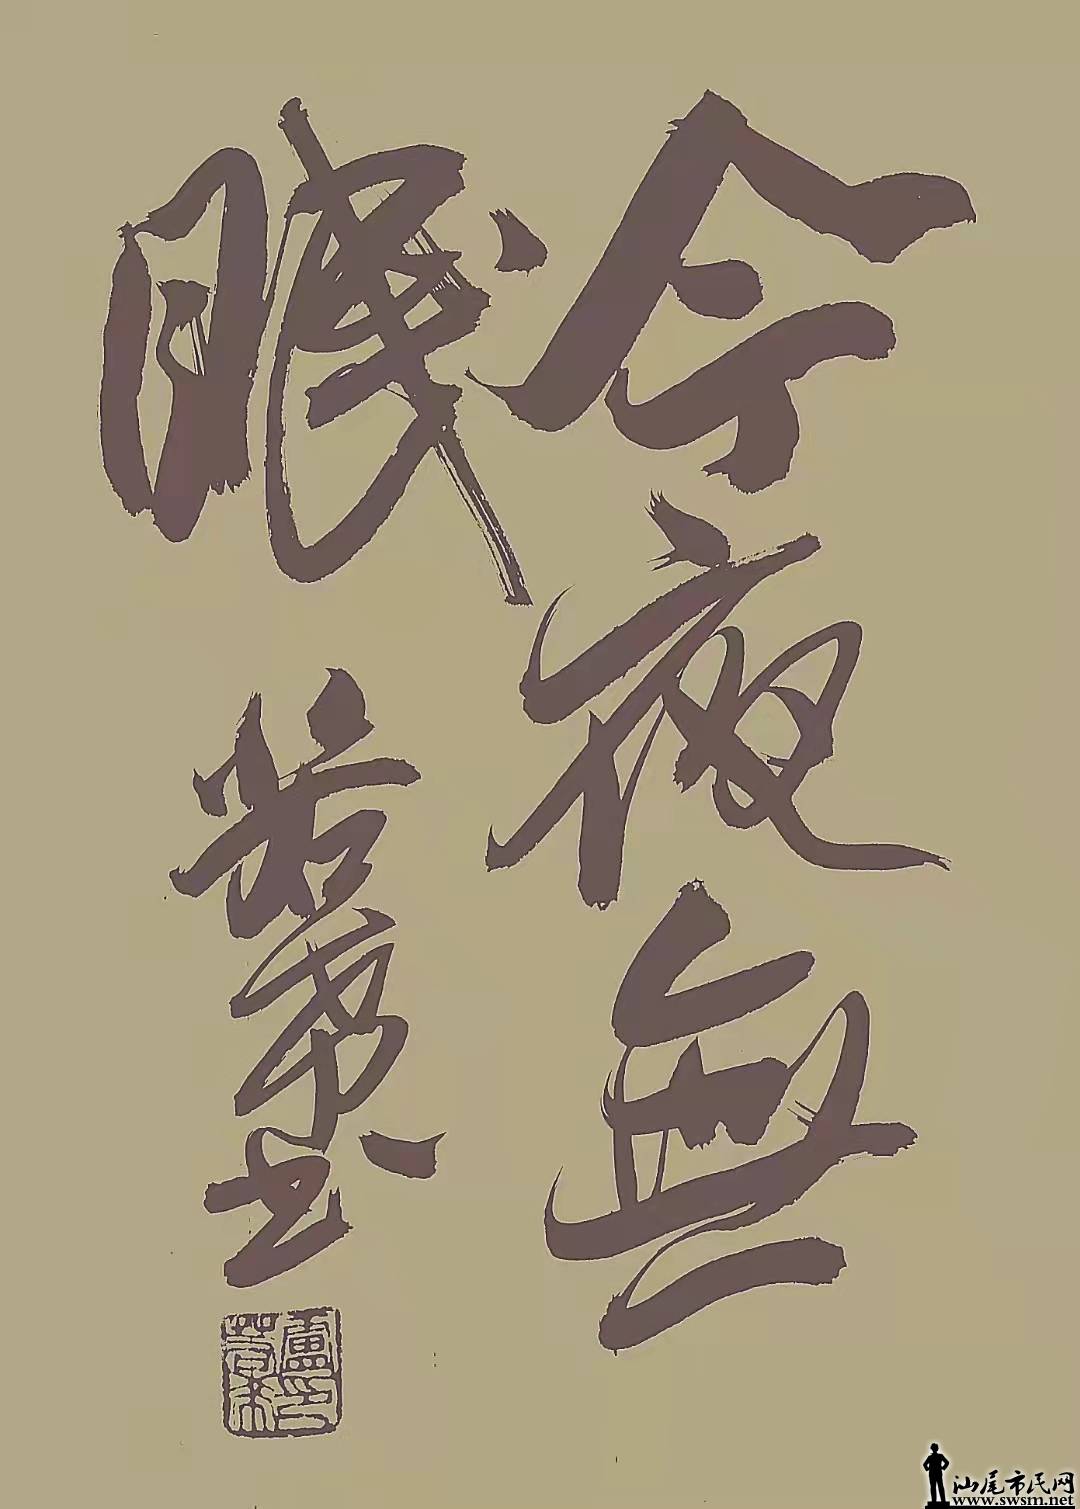 今夜無
眠
若 书
汕尾市民网
www.swsm.net